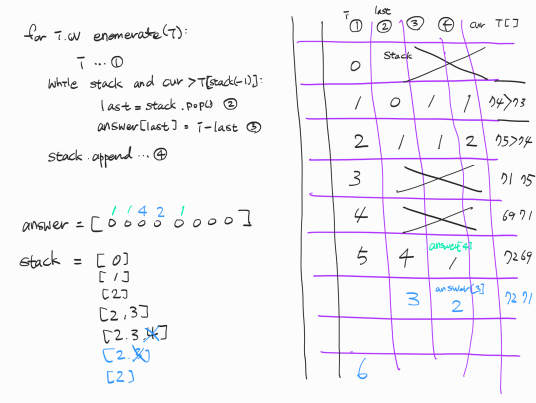 for i.cur enumerate(T):
i ... ①
while stack and cur > T[stack(-1)]:
last = stack.pop() ②
answer[last] = i - last ③
stack.append ... ④
1 1 4 2 1
answer = [ 0 0 0 0 0 0 0 0 ]
stack = [ 0 ]
[ 1 ]
[2]
[2,3]
[2.3.4]
[2.3]
[2]
i last
① ② ③ ④ cur T[ ]
0 Stack
1 0 1 1 74>73
2 1 1 2 75>74
3 71 75
4 69 71
answer[4]
5 4 1 72 69
answer[3]
3 2 72 71
6